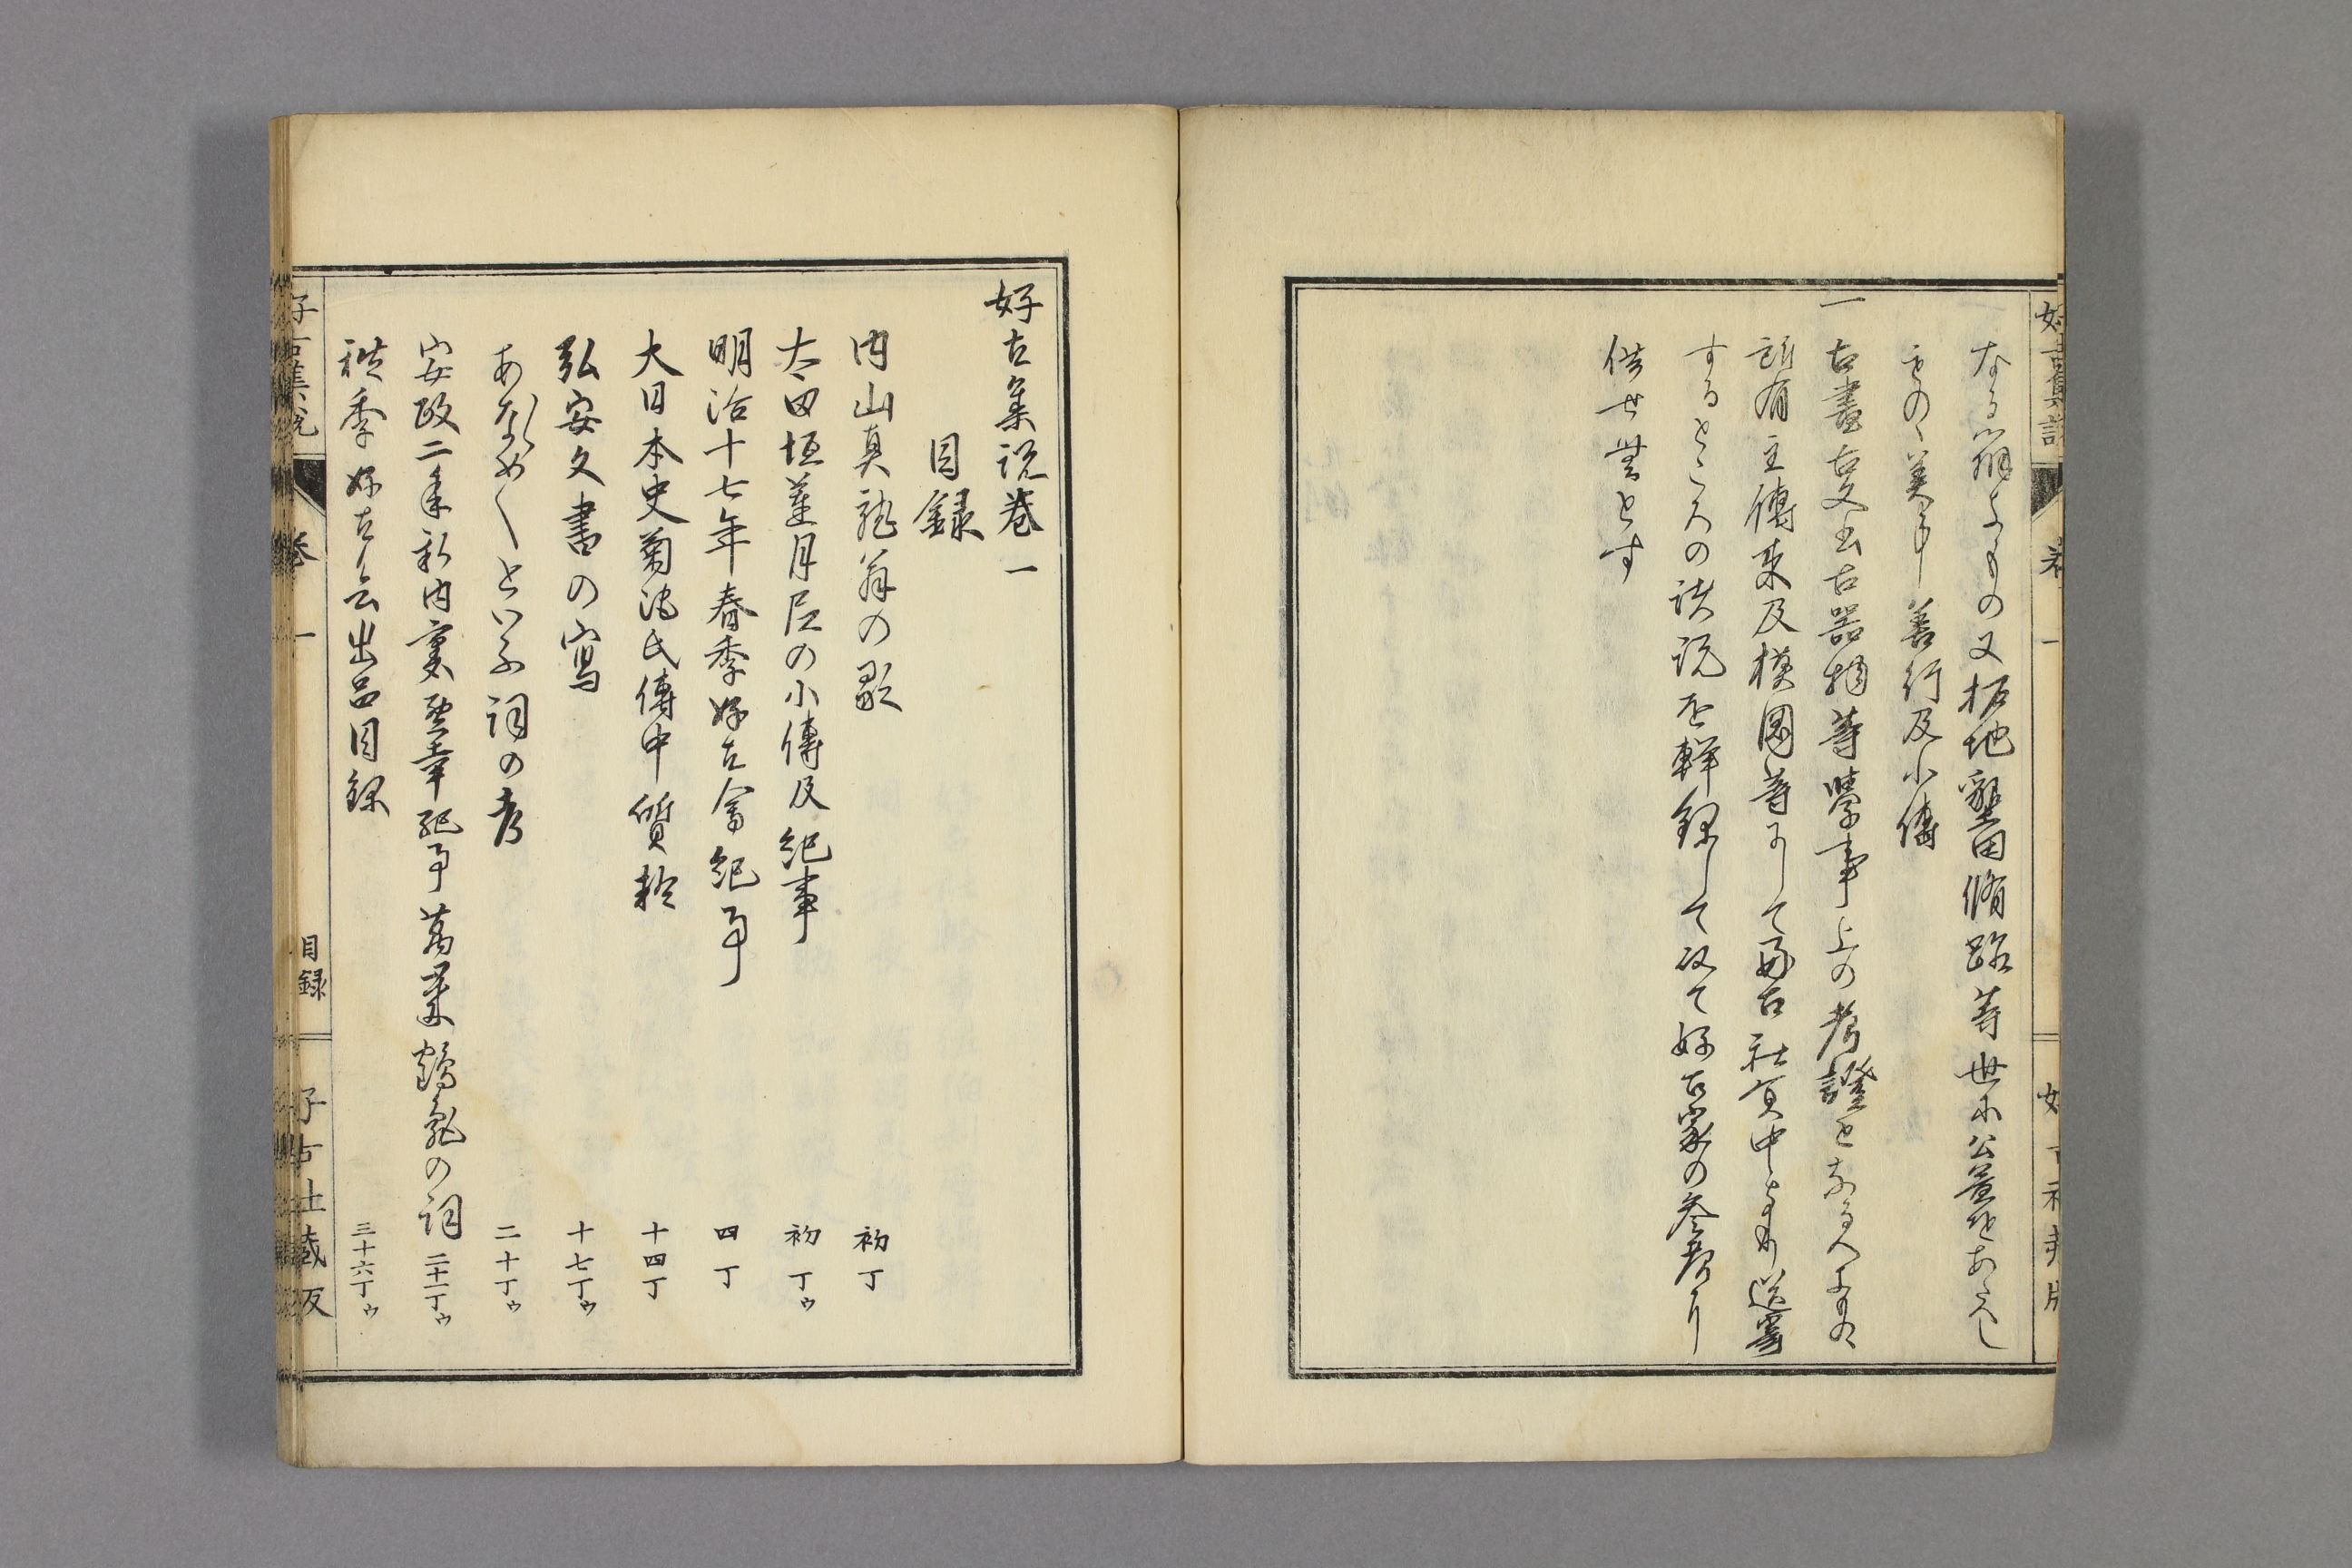 なる論なるもの又拓地墾田脩路等世に公益をあらハし
ものゝ美事善行及小傳
一古書古文書古器物等學事上の考證となるへきものゝ
所有主傳來及模圖等にして好古社員中より送寄
するところの談説を輯録して以て好古家の參考に
供せむとす
好古集説
巻一
好古集説巻一
目録
内山真龍翁の歌 初丁
太田垣蓮月尼の小傳及紀事 初丁ゥ
明治十七年春季好古會紀事 四丁
大日本史菊池氏傳中質疑 十四丁
弘安文書の寫 十七丁ゥ
あなかしくといふ詞の考 二十丁ゥ
安政二年新内裏御遷幸紀事 萬葉鶴亀の詞 二十一丁ゥ
秋季好古会出品目録 三十六丁ゥ
好古集説
巻一
目録
好古社藏版